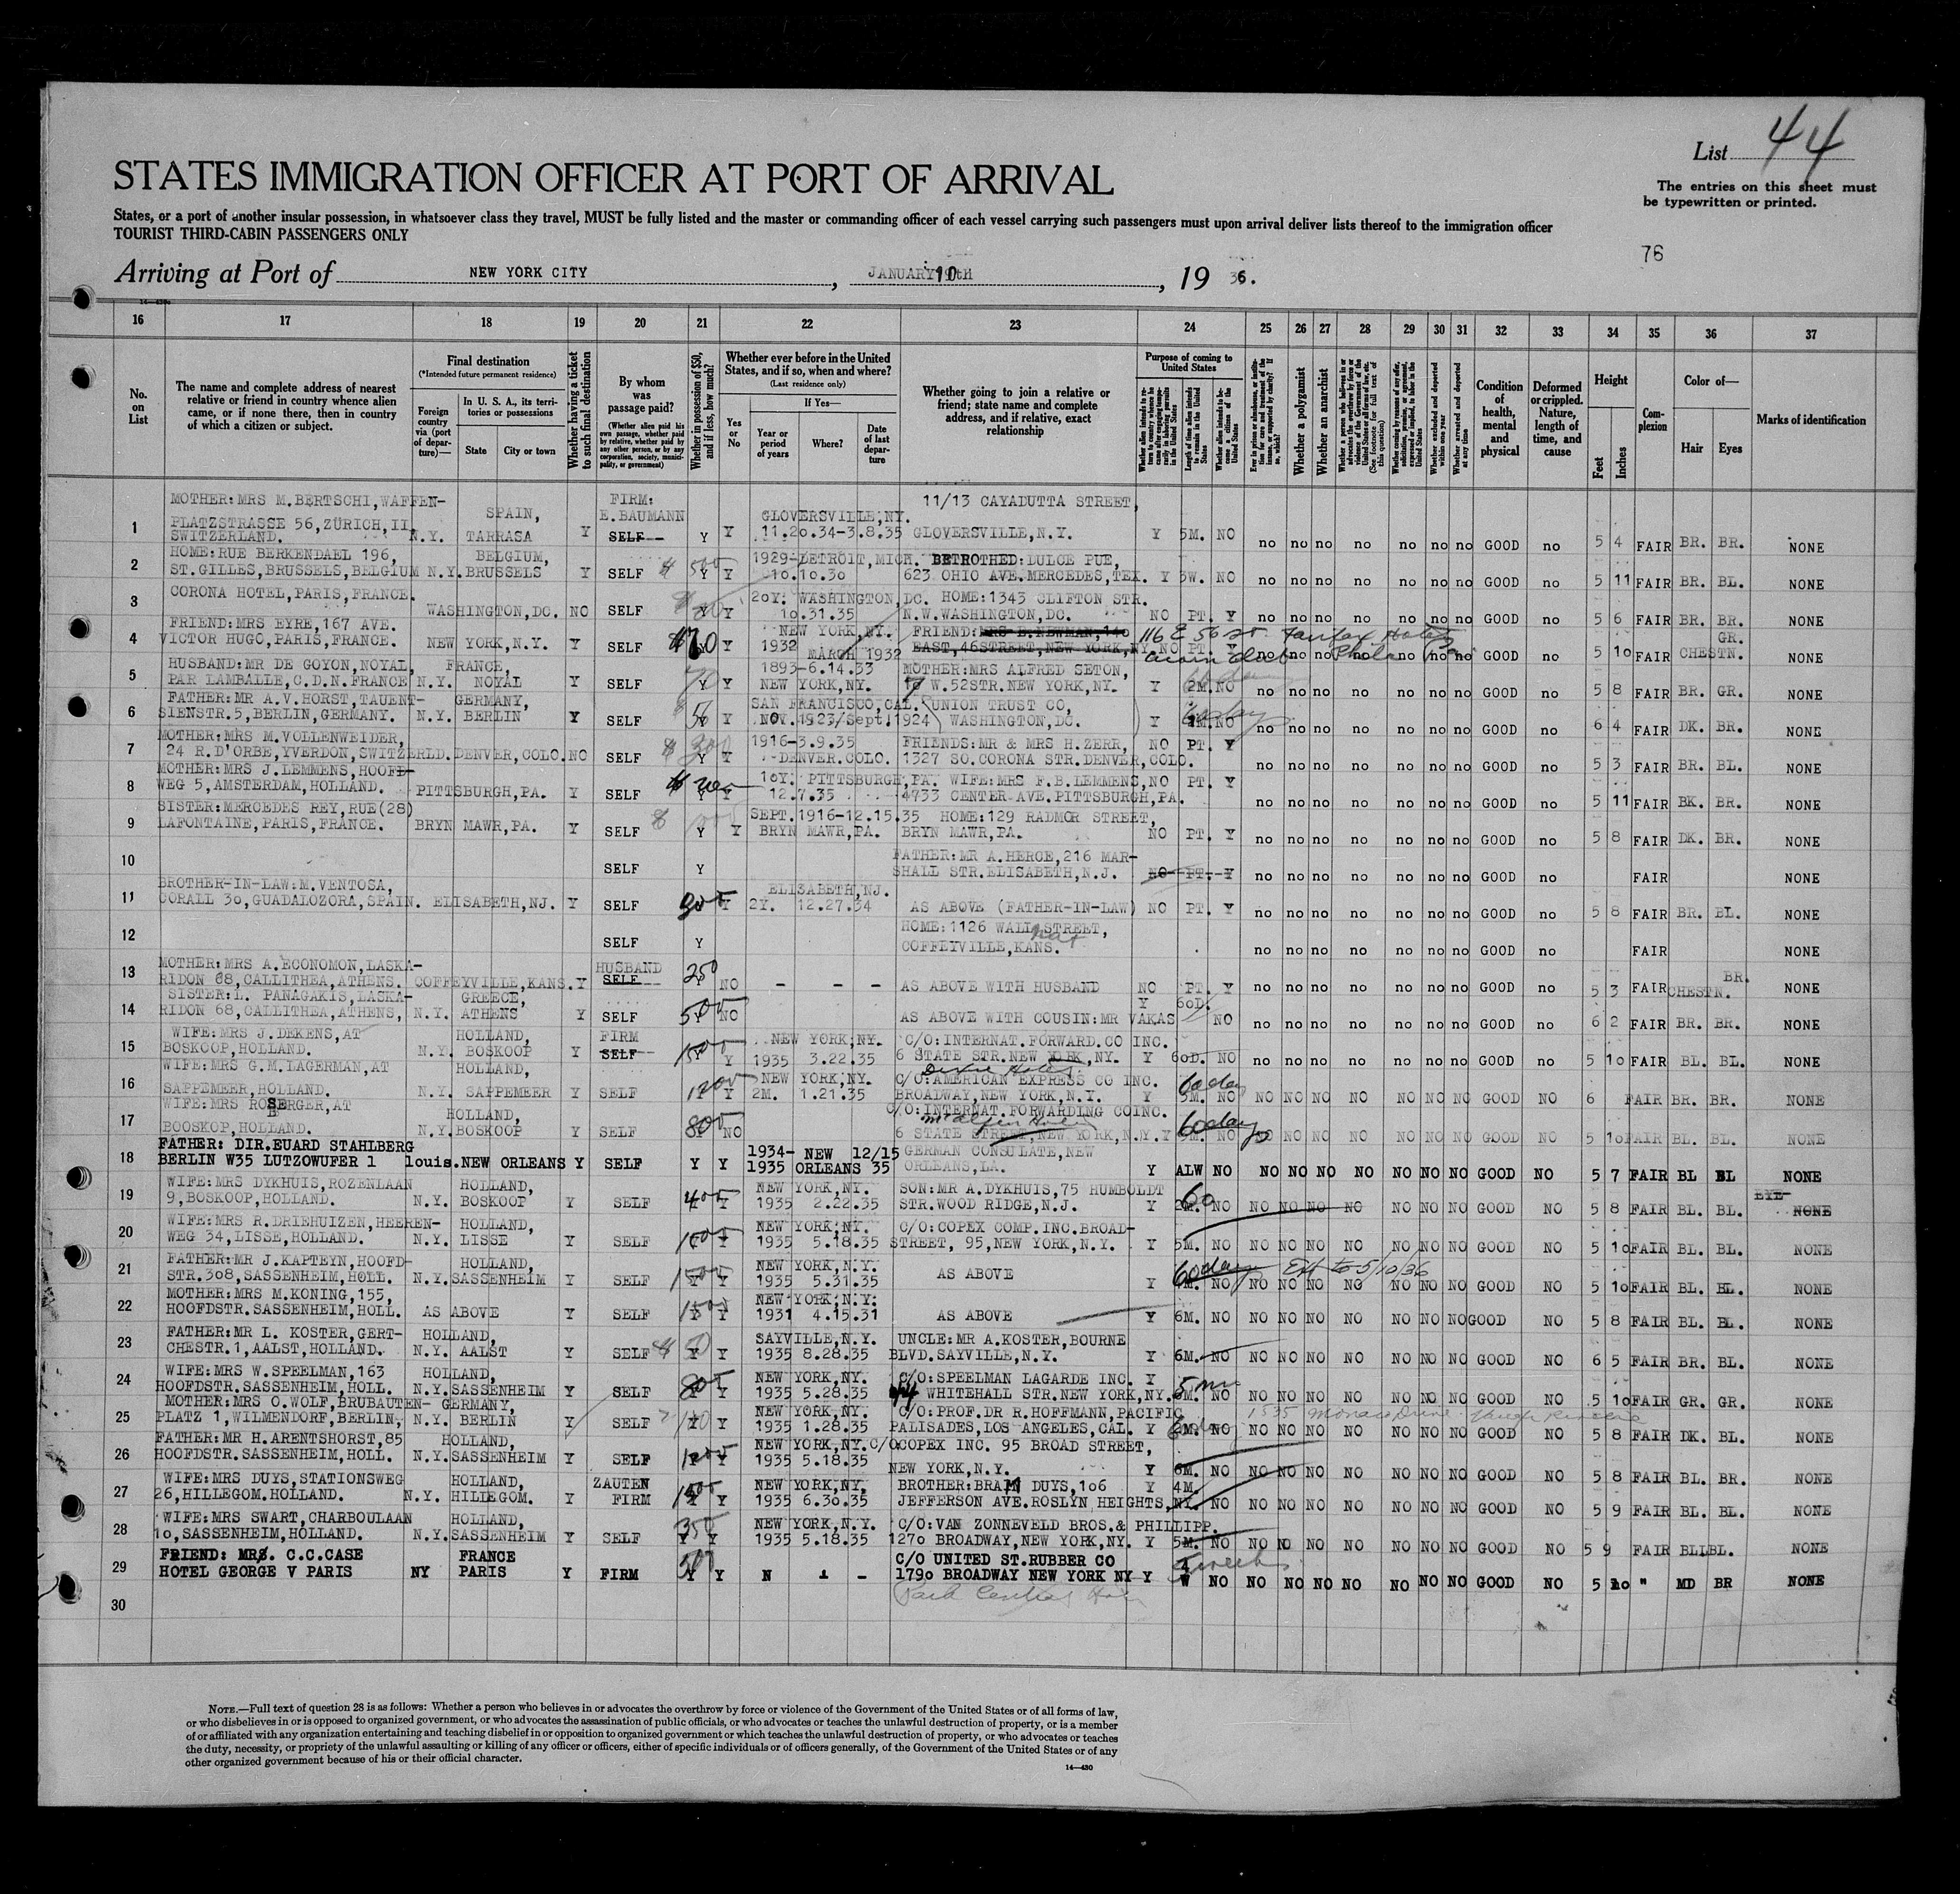 List 44
STATES IMMIGRATION OFFICER AT PORT OF ARRIVAL
The entries on this sheet must
be typewritten or printed.
States, or a port of another insular possession, in whatsoever class they travel, MUST be fully listed and the master or commanding officer of each vessel carrying such passengers must upon arrival deliver lists thereof to the immigration officer
TOURIST THIRD-CABIN PASSENGERS ONLY
76
Arriving at Port of NEW YORK CITY, JANUARY 10th, 19 36.
16 17 18 19 20 21 22 23 24 25 26 27 28 29 30 31 32 33 34 35 36 37
No. on List
The name and complete address of nearest relative or friend in country whence alien came, or if none there, then in country of which a citizen or subject.
Final destination
(*Intended future permanent residence)
Foreign country via (port of departure)—
In U. S. A., its territories or possessions
State
City or town
Whether having a ticket to such final destination
By whom was passage paid?
(Whether alien paid his own passage, whether paid by relative, whether paid by any other person, or by any corporation, society, municipality, or government)
Whether in possession of $50, and if less, how much?
Whether ever before in the United States, and if so, when and where?
(Last residence only)
Yes or No
If Yes—
Year or period of years
Where?
Date of last departure
Whether going to join a relative or friend; state name and complete address, and if relative, exact relationship
Purpose of coming to United States
Length of time alien intends to remain in the United States
Whether alien intends to become a citizen of the United States
Whether a polygamist
Whether an anarchist
Whether excluded and deported within one year
Whether arrested and deported at any time
Condition of health, mental and physical
Deformed or crippled. Nature, length of time, and cause
Height
Feet
Inches
Complexion
Color of—
Hair
Eyes
Marks of identification
MOTHER:MRS M.BERTSCHI,WAFFEN- FIRM: 11/13 CAYADUTTA STREET,
1 PLATZSTRASSE 56,ZÜRICH,II, SPAIN, E.BAUMANN GLOVERSVILLE,NY.
SWITZERLAND. N.Y. TARRASA Y SELF Y Y 11.20.34-3.8.35 GLOVERSVILLE,N.Y. Y 5M. NO no no no no no no no GOOD no 5 4 FAIR BR. BR. NONE
HOME:RUE BERKENDAEL 196, BELGIUM, 1929-DETROIT,MICH. BETROTHED:DULCE PUE,
2 ST.GILLES,BRUSSELS,BELGIUM N.Y.BRUSSELS Y SELF $ 500 Y Y 10.10.30 623 OHIO AVE.MERCEDES,TEX. Y 3W. NO no no no no no no no GOOD no 5 11 FAIR BR. BL. NONE
3 CORONA HOTEL,PARIS,FRANCE. 20Y. WASHINGTON,DC. HOME:1343 CLIFTON STR.
WASHINGTON,DC. NO SELF Y Y 10.31.35 N.W.WASHINGTON,DC. NO PT. Y no no no no no no no GOOD no 5 6 FAIR BR. BR. NONE
FRIEND:MRS EYRE,167 AVE. NEW YORK,NY. FRIEND:MRS B.NEWMAN,140 116 E 56 st Fairfax Hotel GR.
4 VICTOR HUGO,PARIS,FRANCE. NEW YORK,N.Y. Y SELF Y 1932 MARCH 1932 EAST,46STREET,NEW YORK,NY NO PT. Y no no no no no no no GOOD no 5 10 FAIR CHESTN. NONE
HUSBAND:MR DE GOYON,NOYAL, FRANCE, 1893-6.14.33 MOTHER:MRS ALFRED SETON,
5 PAR LAMBALLE,C.D.N.FRANCE N.Y. NOYAL Y SELF 70 Y NEW YORK,NY. W.52STR.NEW YORK,NY. Y 2M. NO no no no no no no no GOOD no 5 8 FAIR BR. GR. NONE
FATHER:MR A.V.HORST,TAUENT- GERMANY, SAN FRANCISCO,CAL. UNION TRUST CO,
6 SIENSTR.5,BERLIN,GERMANY. N.Y. BERLIN Y SELF Y NOV.1923/Sept.1924 WASHINGTON,DC. Y NO no no no no no no no GOOD no 6 4 FAIR DK. BR. NONE
MOTHER:MRS M.VOLLENWEIDER, 1916-3.9.35 FRIENDS:MR & MRS H.ZERR, NO PT. Y
7 24 R.D'ORBE,YVERDON,SWITZERLD.DENVER,COLO.NO SELF $ 300 Y Y DENVER.COLO. 1327 SO.CORONA STR.DENVER,COLO. no no no no no no no GOOD no 5 3 FAIR BR. BL. NONE
MOTHER:MRS J.LEMMENS,HOOFD- 10Y. PITTSBURGH,PA. WIFE:MRS F.B.LEMMENS, NO PT. Y
8 WEG 5,AMSTERDAM,HOLLAND. PITTSBURGH,PA. Y SELF Y Y 12.7.35 4733 CENTER AVE.PITTSBURGH,PA. no no no no no no no GOOD no 5 11 FAIR BK. BR. NONE
SISTER:MERCEDES REY,RUE(28) SEPT.1916-12.15.35 HOME:129 RADMOR STREET,
9 LAFONTAINE,PARIS,FRANCE. BRYN MAWR,PA. Y SELF Y Y BRYN MAWR,PA. BRYN MAWR,PA. NO PT. Y no no no no no no no GOOD no 5 8 FAIR DK. BR. NONE
10 SELF Y FATHER:MR A.HERCE,216 MAR-
SHALL STR.ELISABETH,N.J. NO PT. Y no no no no no no no GOOD no FAIR NONE
BROTHER-IN-LAW:M.VENTOSA, ELIZABETH,NJ.
11 CORALL 30,GUADALOZORA,SPAIN. ELISABETH,NJ. Y SELF Y 2Y. 12.27.34 AS ABOVE (FATHER-IN-LAW) NO PT. Y no no no no no no no GOOD no 5 8 FAIR BR. BL. NONE
12 SELF Y HOME:1126 WALL STREET,
COFFEYVILLE,KANS. no no no no no no no GOOD no FAIR NONE
MOTHER:MRS A.ECONOMON,LASKA- HUSBAND BR.
13 RIDON 68,CALLITHEA,ATHENS. COFFEYVILLE,KANS.Y SELF 250 Y NO - - - AS ABOVE WITH HUSBAND NO PT. Y no no no no no no no GOOD no 5 3 FAIR CHESTN. NONE
SISTER:L. PANAGAKIS,LASKA- GREECE, Y 60D.
14 RIDON 68,CALLITHEA,ATHENS, N.Y. ATHENS Y SELF 500 NO AS ABOVE WITH COUSIN:MR VAKAS NO no no no no no no no GOOD no 6 2 FAIR BR. BR. NONE
WIFE:MRS J.DEKENS,AT HOLLAND, FIRM NEW YORK,NY. C/O:INTERNAT.FORWARD.CO INC.
15 BOSKOOP,HOLLAND. N.Y. BOSKOOP Y SELF 1500 Y Y 1935 3.22.35 6 STATE STR.NEW YORK,NY. Y 60D. NO no no no no no no no GOOD no 5 10 FAIR BL. BL. NONE
WIFE:MRS G.M.LAGERMAN,AT HOLLAND, NEW YORK,NY. C/O:AMERICAN EXPRESS CO INC. 60 day
16 SAPPEMEER,HOLLAND. N.Y. SAPPEMEER Y SELF 1200 Y 2M. 1.21.35 BROADWAY,NEW YORK,N.Y. Y M. NO NO NO NO NO NO NO NO GOOD NO 6 FAIR BR. BR. NONE
WIFE:MRS ROSBERGER,AT HOLLAND, C/O:INTERNAT.FORWARDING COINC.
17 BOOSKOP,HOLLAND. N.Y.BOSKOOP Y SELF 800 NO 6 STATE STREET,NEW YORK,N.Y. Y 60 days NO NO NO NO NO NO NO GOOD NO 5 10 FAIR BL. BL. NONE
FATHER: DIR.EUARD STAHLBERG 1934- NEW 12/15 GERMAN CONSULATE,NEW
18 BERLIN W35 LUTZOWUFER 1 louis.NEW ORLEANS Y SELF Y Y 1935 ORLEANS 35 ORLEANS,LA. Y ALW NO NO NO NO NO NO NO NO GOOD NO 5 7 FAIR BL BL NONE
WIFE:MRS DYKHUIS,ROZENLAAN HOLLAND, NEW YORK,NY. SON:MR A.DYKHUIS,75 HUMBOLDT 60 EYE-
19 9,BOSKOOP,HOLLAND. N.Y. BOSKOOP Y SELF 400 Y 1935 2.22.35 STR.WOOD RIDGE,N.J. Y 2M. NO NO NO NO NO NO NO NO GOOD NO 5 8 FAIR BL. BL. NONE
WIFE:MRS R.DRIEHUIZEN,HEEREN- HOLLAND, NEW YORK,NY. C/O:COPEX COMP.INC.BROAD-
20 WEG 34,LISSE,HOLLAND. N.Y. LISSE Y SELF 1500 Y 1935 5.18.35 STREET, 95,NEW YORK,N.Y. Y 5M. NO NO NO NO NO NO NO NO GOOD NO 5 10 FAIR BL. BL. NONE
FATHER:MR J.KAPTEYN,HOOFD- HOLLAND, NEW YORK,N.Y. 60 days Ext to 5/10/36
21 STR.308,SASSENHEIM,HOLL. N.Y.SASSENHEIM Y SELF 1500 Y 1935 5.31.35 AS ABOVE Y M. NO NO NO NO NO NO NO NO GOOD NO 5 10 FAIR BL. BL. NONE
MOTHER:MRS M.KONING,155, NEW YORK,N.Y.
22 HOOFDSTR.SASSENHEIM,HOLL. AS ABOVE Y SELF 1500 Y 1931 4.15.31 AS ABOVE Y 6M. NO NO NO NO NO NO NO NO GOOD NO 5 8 FAIR BL. BL. NONE
FATHER:MR L. KOSTER,GERT- HOLLAND, SAYVILLE,N.Y. UNCLE:MR A.KOSTER,BOURNE
23 CHESTR.1,AALST,HOLLAND. N.Y. AALST Y SELF $ 50 Y Y 1935 8.28.35 BLVD.SAYVILLE,N.Y. Y 6M. NO NO NO NO NO NO NO NO GOOD NO 6 5 FAIR BR. BL. NONE
WIFE:MRS W.SPEELMAN,163 HOLLAND, NEW YORK,NY. C/O:SPEELMAN LAGARDE INC. Y
24 HOOFDSTR.SASSENHEIM,HOLL. N.Y.SASSENHEIM Y SELF 800 Y 1935 5.28.35 WHITEHALL STR.NEW YORK,NY. 5 mo M. NO NO NO NO NO NO NO NO GOOD NO 5 10 FAIR GR. GR. NONE
MOTHER:MRS O.WOLF,BRUBAUTEN- GERMANY, NEW YORK,NY. C/O:PROF.DR R.HOFFMANN,PACIFIC
25 PLATZ 1,WILMENDORF,BERLIN, N.Y. BERLIN Y SELF Y Y 1935 1.28.35 PALISADES,LOS ANGELES,CAL. Y M. NO NO NO NO NO NO NO NO GOOD NO 5 8 FAIR DK. BL. NONE
FATHER:MR H.ARENTSHORST,85 HOLLAND, NEW YORK,NY. C/OCOPEX INC. 95 BROAD STREET,
26 HOOFDSTR.SASSENHEIM,HOLL. N.Y.SASSENHEIM Y SELF Y 1935 5.18.35 NEW YORK,N.Y. Y 6M. NO NO NO NO NO NO NO NO GOOD NO 5 8 FAIR BL. BR. NONE
WIFE:MRS DUYS,STATIONSWEG HOLLAND, ZAUTEN NEW YORK,NY. BROTHER:BRAM DUYS,106 Y 4M.
27 26,HILLEGOM.HOLLAND. N.Y. HILLEGOM. Y FIRM 1500 Y Y 1935 6.30.35 JEFFERSON AVE.ROSLYN HEIGHTS,NY. NO NO NO NO NO NO NO NO GOOD NO 5 9 FAIR BL. BL. NONE
WIFE:MRS SWART,CHARBOULAAN HOLLAND, NEW YORK,N.Y. C/O:VAN ZONNEVELD BROS.& PHILLIPP.
28 10,SASSENHEIM,HOLLAND. N.Y.SASSENHEIM Y SELF 350 Y Y 1935 5.18.35 1270 BROADWAY,NEW YORK,NY. Y 5M. NO NO NO NO NO NO NO NO GOOD NO 5 9 FAIR BLLBL. NONE
FRIEND: MRS. C.C.CASE FRANCE C/O UNITED ST.RUBBER CO weeks
29 HOTEL GEORGE V PARIS NY PARIS Y FIRM 500 Y Y N - 1790 BROADWAY NEW YORK NY Y W NO NO NO NO NO NO NO NO GOOD NO 5 10 " MD BR NONE
Park Central Hotel
30
NOTE.—Full text of question 28 is as follows: Whether a person who believes in or advocates the overthrow by force or violence of the Government of the United States or of all forms of law,
or who disbelieves in or is opposed to organized government, or who advocates the assassination of public officials, or who advocates or teaches the unlawful destruction of property, or is a member
of or affiliated with any organization entertaining and teaching disbelief in or opposition to organized government or which teaches the unlawful destruction of property, or who advocates or teaches
the duty, necessity, or propriety of the unlawful assaulting or killing of any officer or officers, either of specific individuals or of officers generally, of the Government of the United States or of any
other organized government because of his or their official character.
14—430